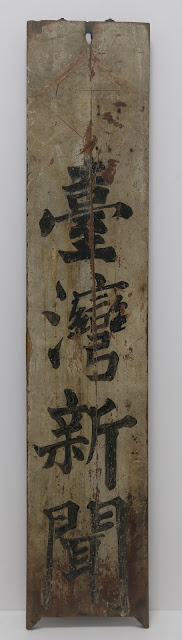 臺灣新聞